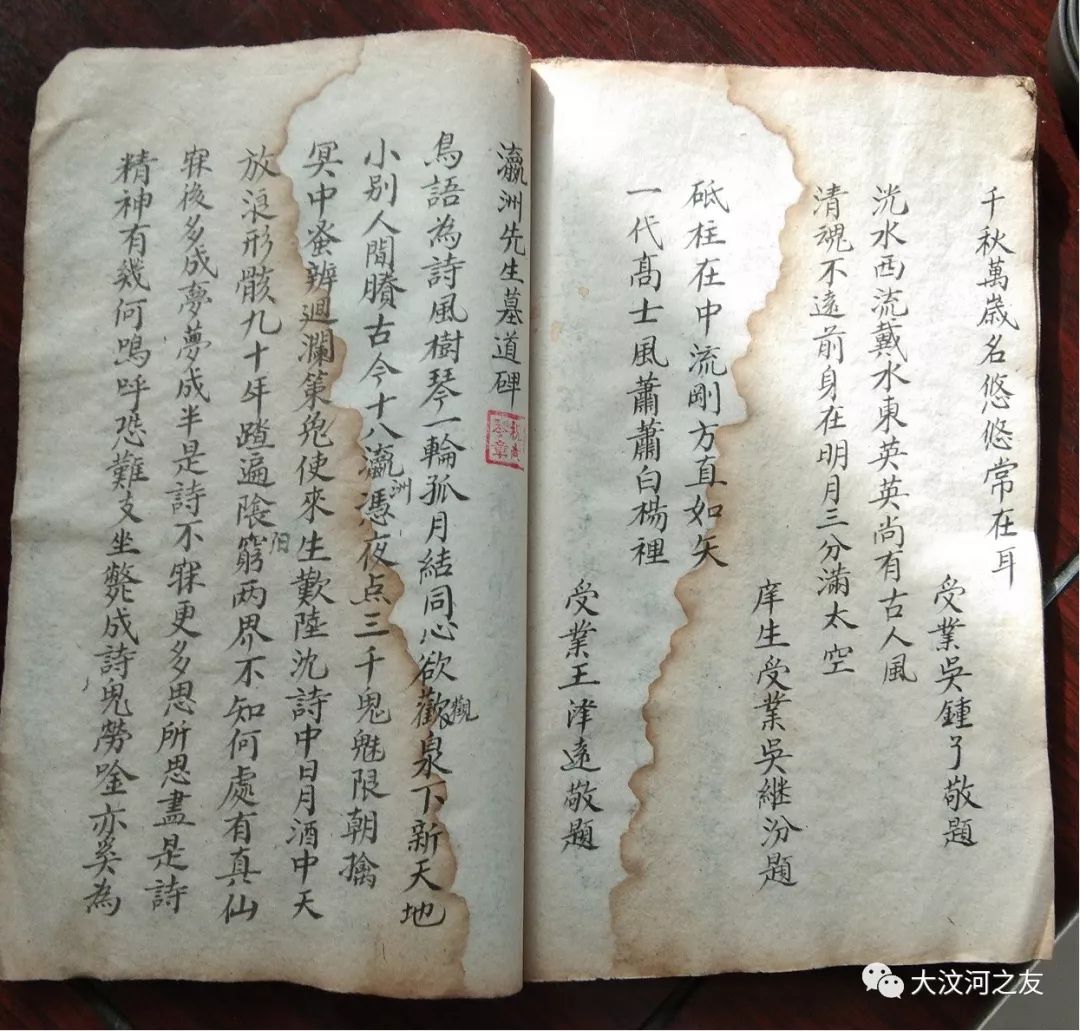 千秋萬歲名悠悠常在耳
受業吳鍾了敬題
洸水西流戴水東英英尚有古人風
清魂不遠前身在明月三分滿太空
庠生受業吳継汾題
砥柱在中流剛方直如矢
一代髙士風蕭蕭白楊裡
受業王津遠敬題
瀛洲先生墓道碑
鳥語為詩風樹琴一輪孤月結同心欲歡觀泉下新天地
小別人間賸古今十八瀛洲憑夜点三千鬼魅限朝擒
冥中蚤辨迴瀾策免使來生歎陸沈詩中日月酒中天
放浪形骸九十年踏遍陰阳窮两界不知何處有真仙
寐後多成夢夢成半是詩不寐更多思所思盡是詩
精神有幾何嗚呼恐難支坐斃成詩鬼勞唫亦奚為
大汶河之友